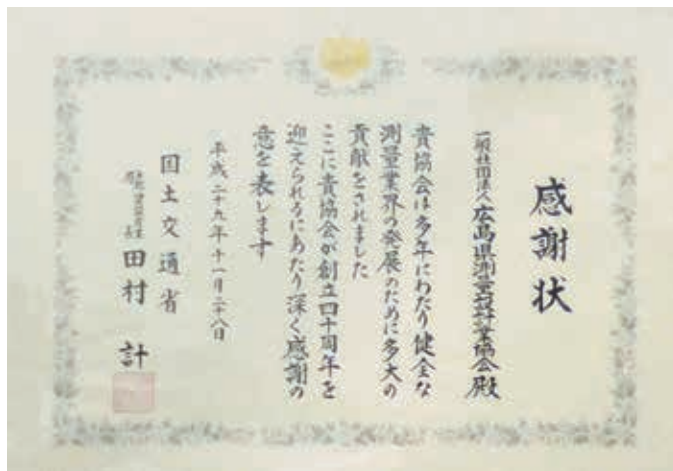 感謝状
一般社団法人広島県測量設計業協会殿
貴協会は多年にわたり健全な
測量業界の発展のために多大の
貢献をされました
ここに貴協会が創立四十周年を
迎えられるにあたり深く感謝の
意を表します
平成二十九年十一月二十八日
国土交通省
土地・建設産業
局長 田村 計